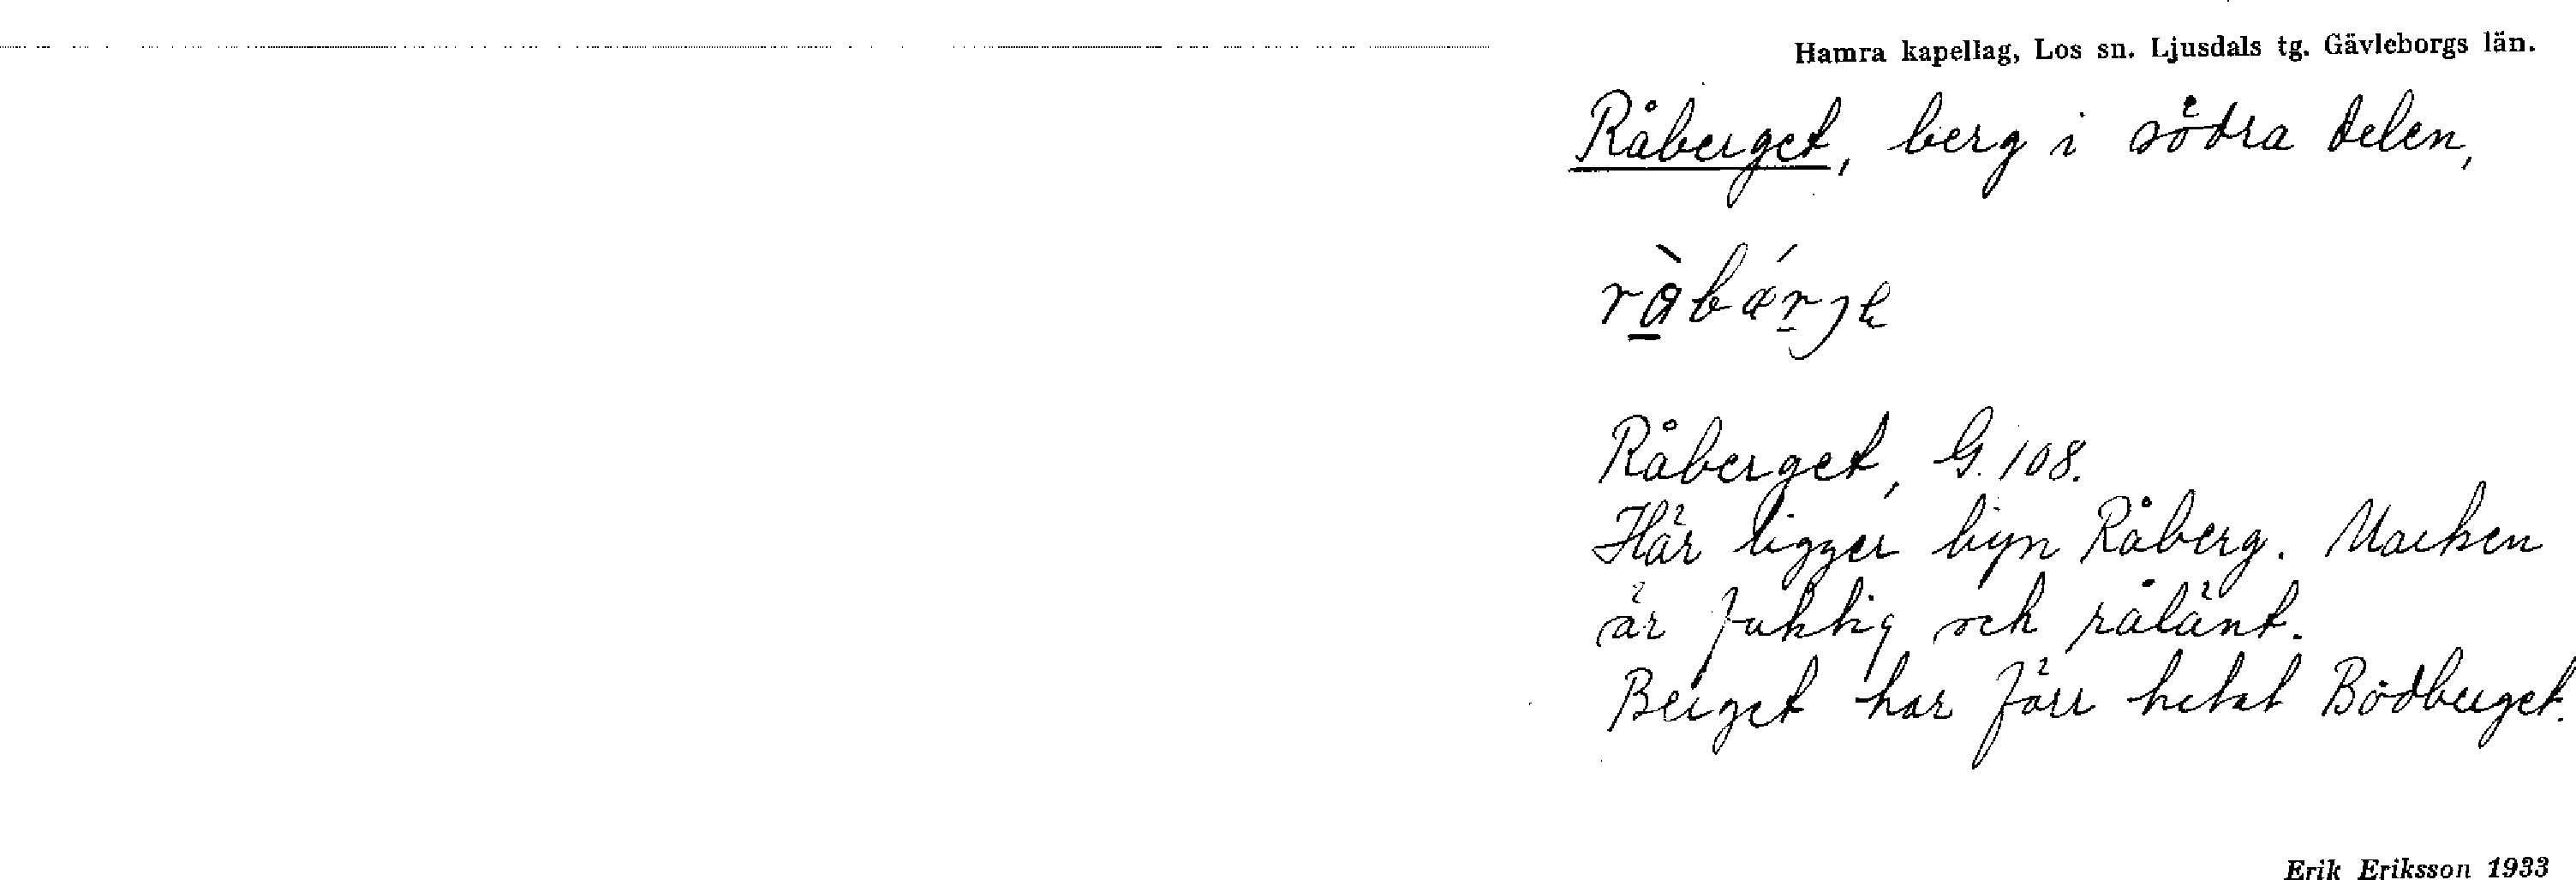 Hamra kapellag, Los sn. Ljusdals tg. Gävleborgs län.
Råberget, berg i södra delen,
Råberget, G. 108.
Här ligger byn Råberg. Marken
är fuktig och rålänt.
Berget har förr hetat Bödberget.
Erik Eriksson 1933